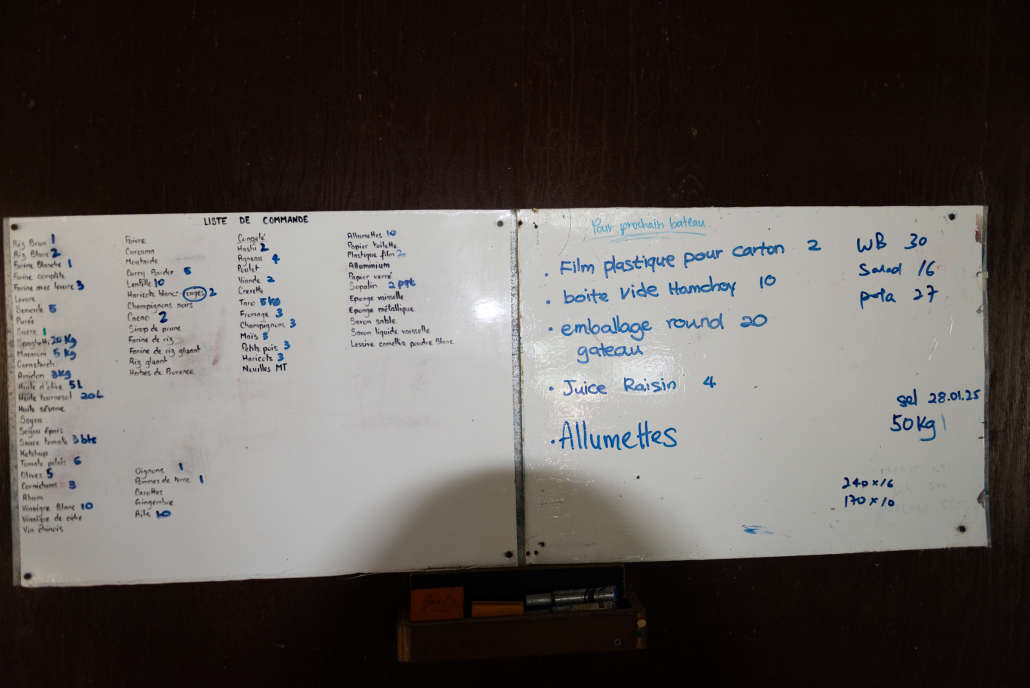 LISTE DE COMMANDE
Riz Brun 1
Riz Blanc 2
Farine Blanche 1
Farine complète
Farine avec levure 3
Levure
Semoule 5
Purée
Sucre 1
Spaghetti 20 Kg
Macaroni 5 Kg
Cornstarch
Amidon 3kg
Huile d'olive 5L
Huile tournesol 20L
Huile sésame
Soyou
Soyou épais
Sauce tomate 3 bts
Ketchup
Tomate pelais 6
Olives 5
Cornichons 3
Rhum
Vinaigre Blanc 10
Vinaigre de cidre
Vin chinois
Poivre
Curcuma
Moutarde
Curry Powder 5
Lentille 10
Haricots blancs rouges 2
Champignons noirs
Cacao 2
Sirop de prune
Farine de riz
Farine de riz gluant
Riz gluant
Herbes de Provence
Oignons 1
Pommes de terre 1
Carottes
Gingembre
Ails 10
Congelé
Hoshi 2
Agneau 4
Poulet
Viande 2
Crevette
Taro 5 kg
Fromage 3
Champignons 3
Maïs 3
Petits pois 3
Haricots 3
Nouilles MT
Allumettes 10
Papier toilette
Plastique film 20
Alluminium
Papier verré
Sopalin 2 ppt
Eponge vaisselle
Eponge métallique
Savon sable
Savon liquide vaisselle
Lessive camellia poudre Blanc
Pour prochain bateau
· Film plastique pour carton 2
· boite vide Hamchoy 10
· emballage round 20
gateau
· Juice Raisin 4
· Allumettes
WB 30
Salad 16
pota 27
sel 28.01.25
50kg
240 x 16
170 x 10